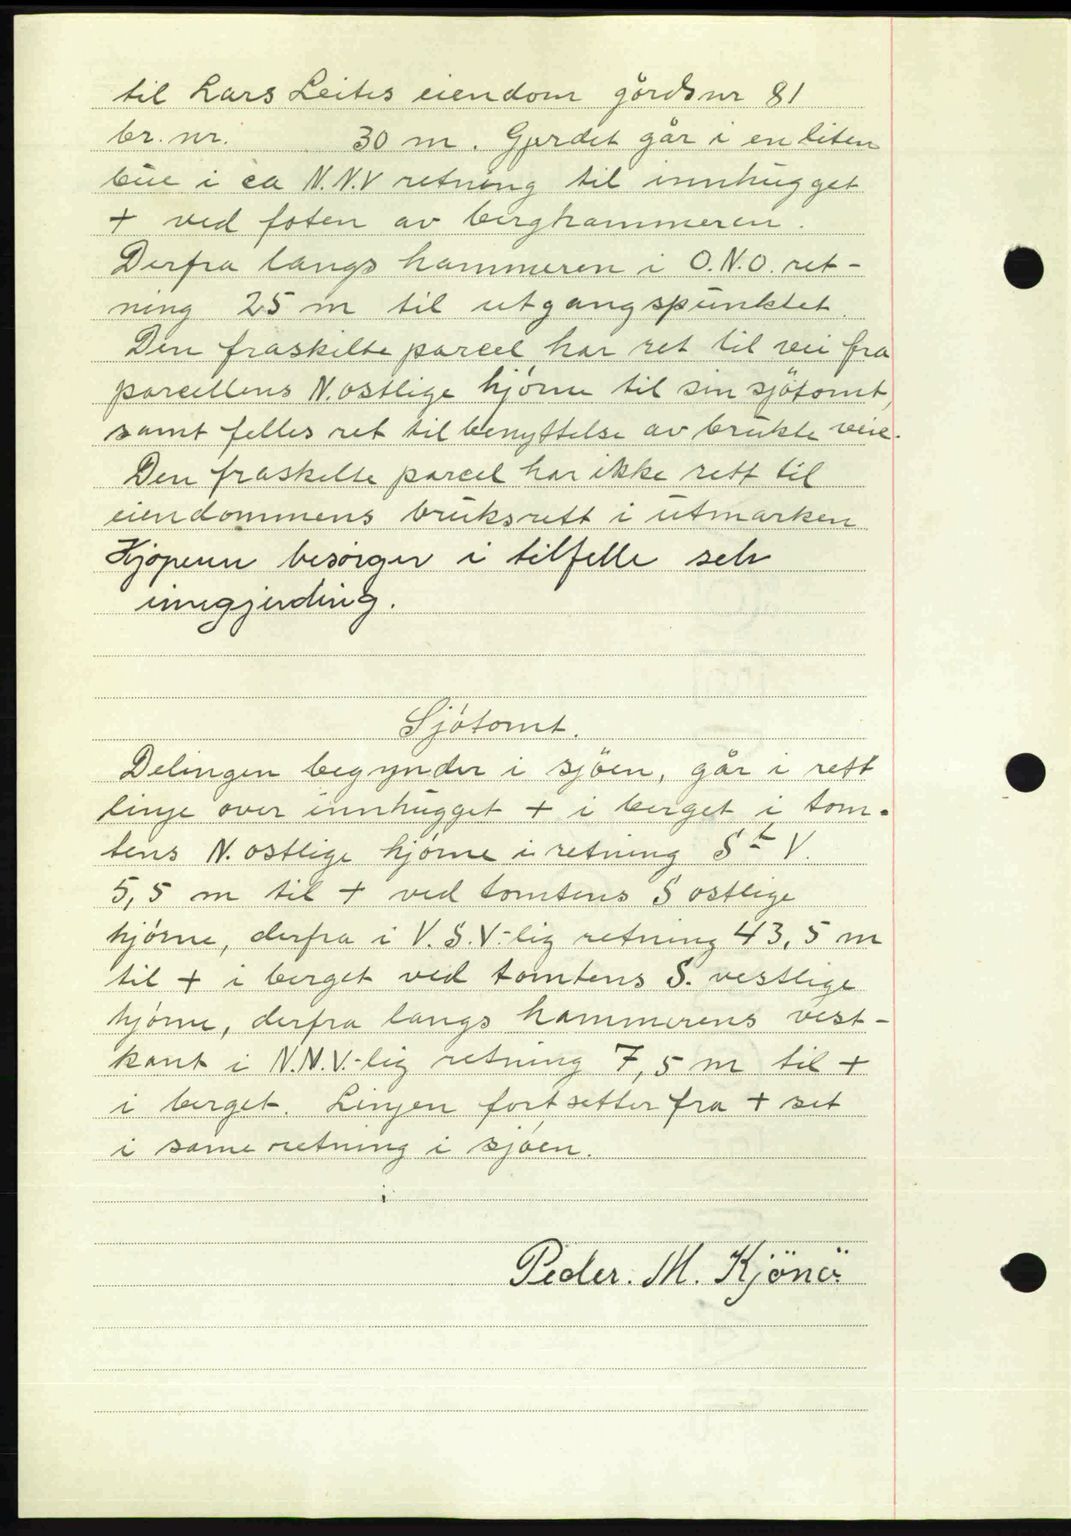 til Lars Leites eiendom gårdsnr 81
br. nr. 30 m. Gjerdet går i en liten
bue i ca N.N.V retning til innhugget
+ ved foten av berghammeren.
Derfra langs hammeren i O.N.O. ret-
ning 25 m til utgangspunktet.
Den fraskilte parcel har ret til vei fra
parcellens N. ostlige hjörne til sin sjötomt,
samt felles ret til benyttelse av brukte veie.
Den fraskilte parcel har ikke rett til
eiendommens bruksrett i utmarken
Kjöperen besörger i tilfelle selv
innegjerding.
Sjötomt.
Delingen begynder i sjöen, går i rett
linje over innhugget + i berget i tom-
tens N. ostlige hjörne i retning S t V.
5,5 m til + ved tomtens S ostlige
hjörne, derfra i V.S.V-lig retning 43,5 m
til + i berget ved tomtens S. vestlige
hjörne, derfra langs hammerens vest-
kant i N.N.V.-lig retning 7,5 m til +
i berget. Linjen fortsetter fra + set
i same retning i sjöen.
Peder. M. Kjönö